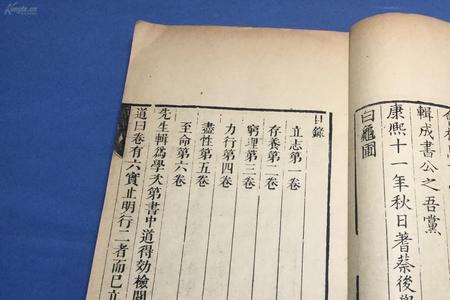 輯成書公之吾黨
康熙十一年秋日著蔡後學
白龜圖
目錄
立志第一卷
存養第二卷
窮理第三卷
力行第四卷
盡性第五卷
至命第六卷
先生輯爲學次第書中道得効檢閱
道曰卷有六實止明行二者而已立